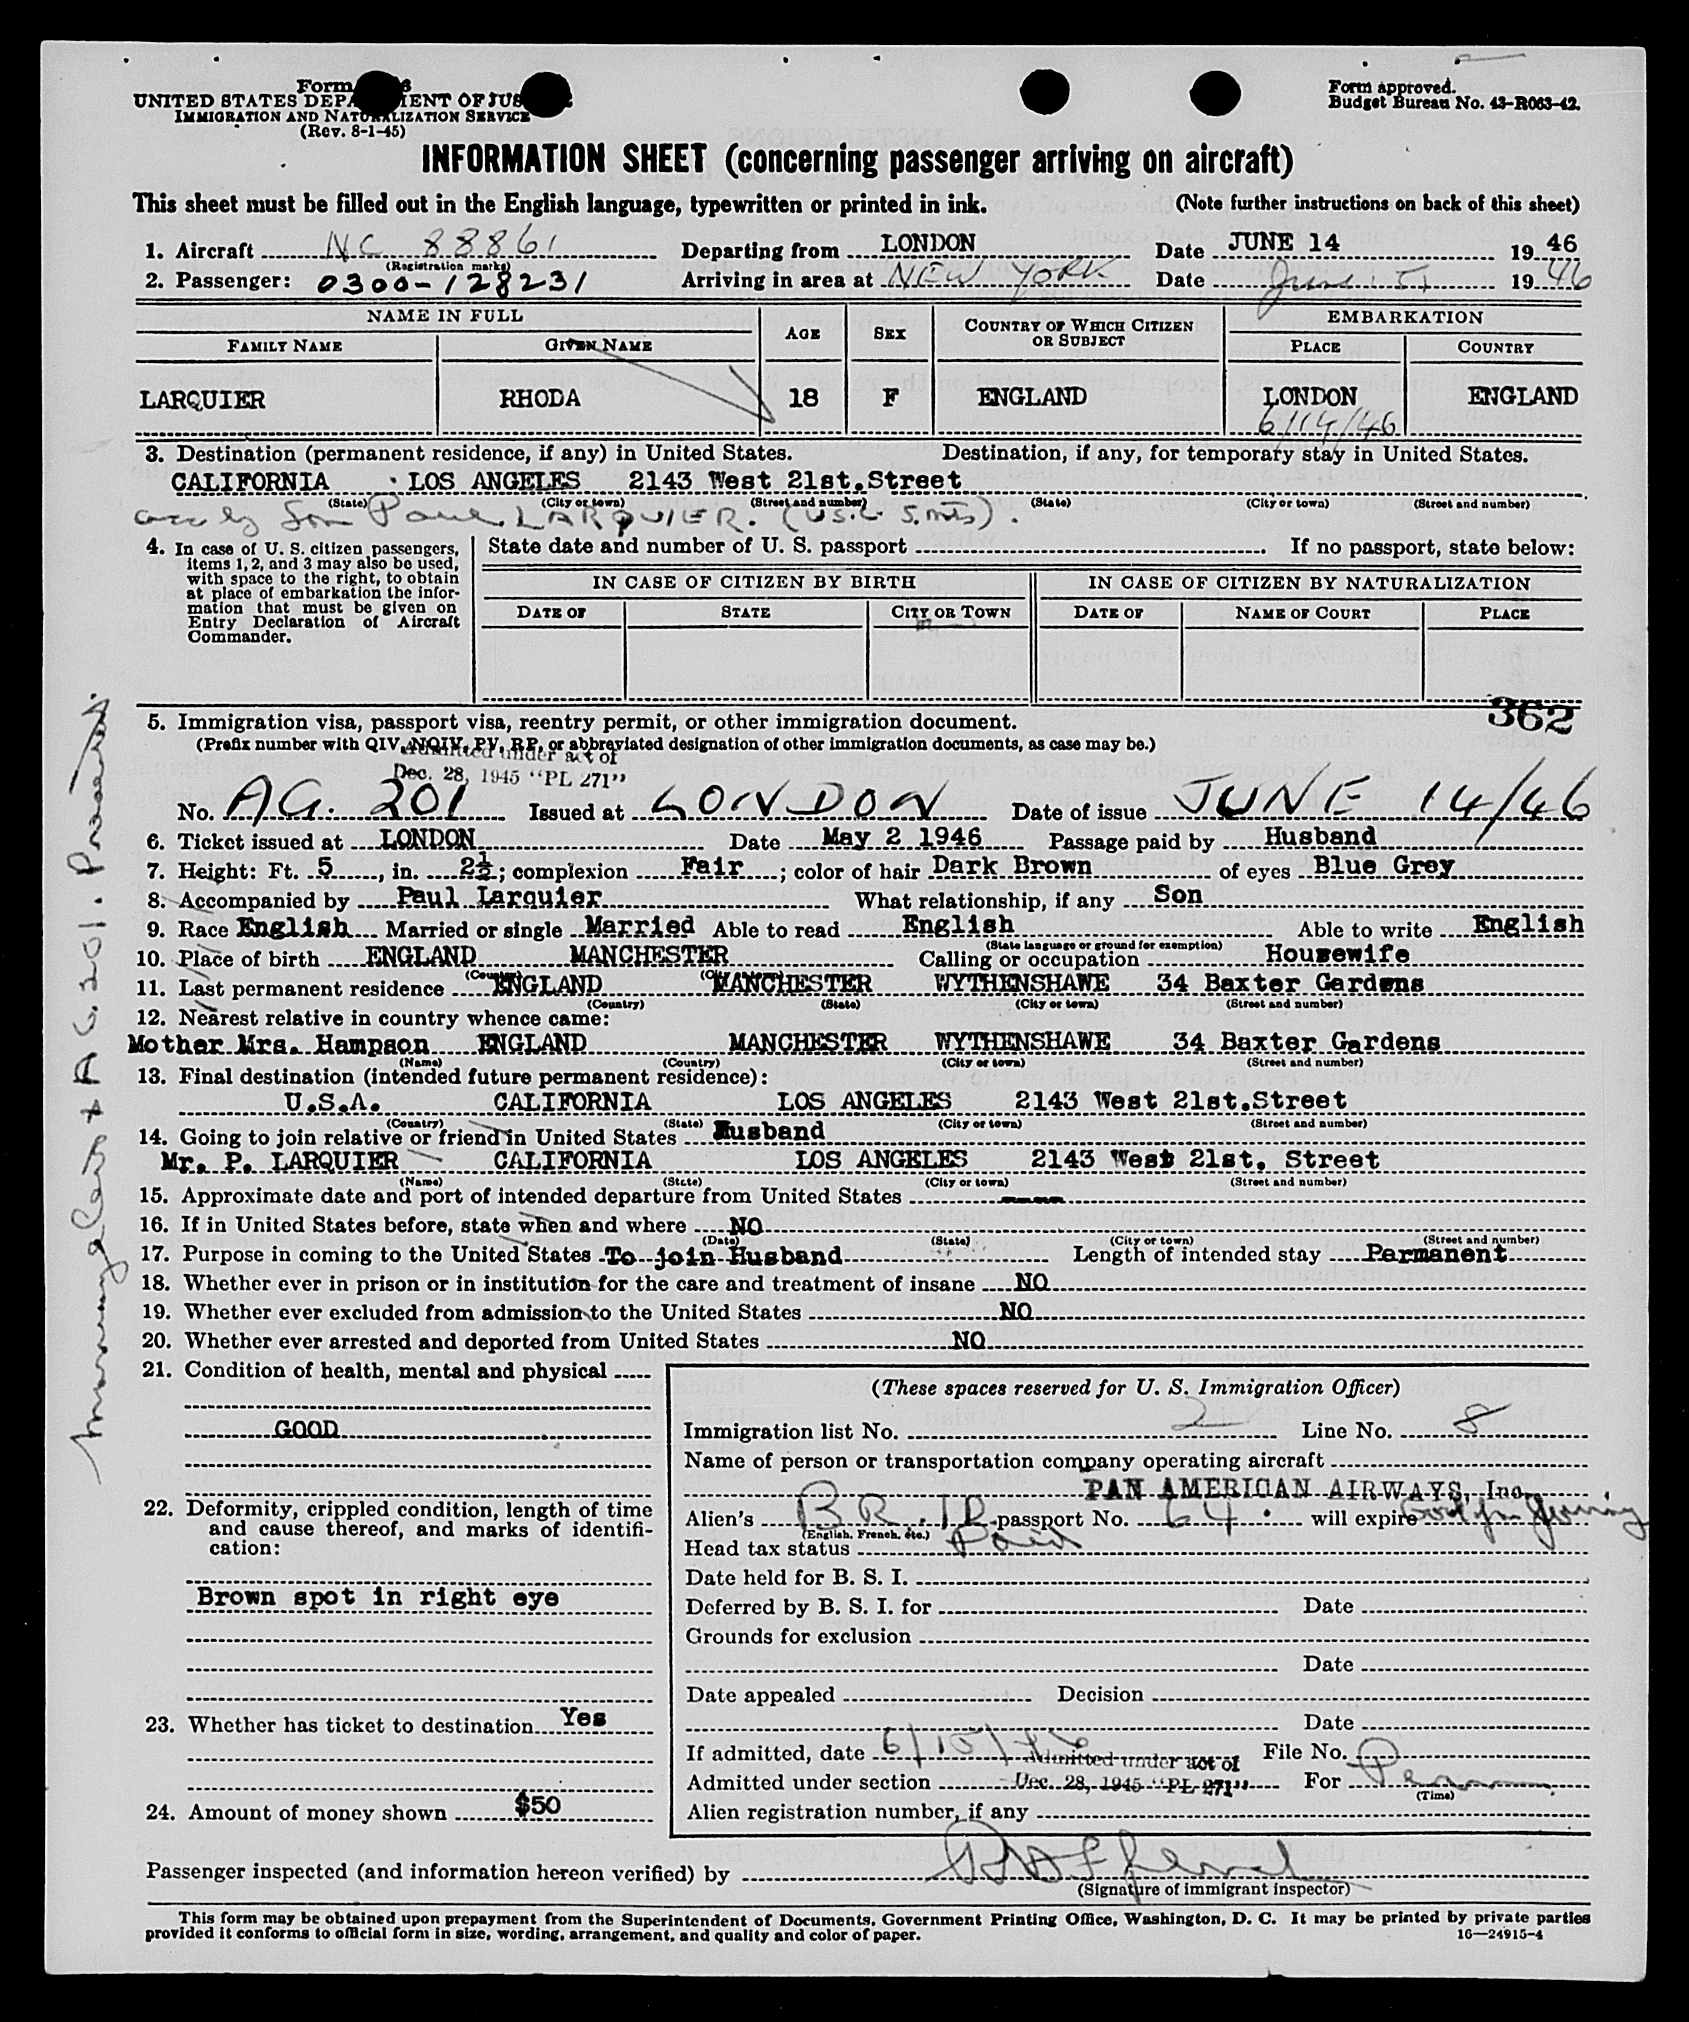 Form
Form approved.
UNITED STATES DEPARTMENT OF JUSTICE
Budget Bureau No. 43-R063-42.
IMMIGRATION AND NATURALIZATION SERVICE
(Rev. 8-1-45)
INFORMATION SHEET (concerning passenger arriving on aircraft)
This sheet must be filled out in the English language, typewritten or printed in ink. (Note further instructions on back of this sheet)
1. Aircraft NC 88861 Departing from LONDON Date JUNE 14 19 46
(Registration marks)
2. Passenger: 0300-128231 Arriving in area at NEW YORK Date June 15 19 46
NAME IN FULL AGE SEX COUNTRY OF WHICH CITIZEN OR SUBJECT EMBARKATION
FAMILY NAME GIVEN NAME PLACE COUNTRY
LARQUIER RHODA 18 F ENGLAND LONDON ENGLAND
6/14/46
3. Destination (permanent residence, if any) in United States. Destination, if any, for temporary stay in United States.
CALIFORNIA LOS ANGELES 2143 West 21st.Street
(State) (City or town) (Street and number) (State) (City or town) (Street and number)
acc by Son Paul LARQUIER. (USC 5.mts).
4. In case of U. S. citizen passengers, items 1, 2, and 3 may also be used, with space to the right, to obtain at place of embarkation the information that must be given on Entry Declaration of Aircraft Commander.
State date and number of U. S. passport If no passport, state below:
IN CASE OF CITIZEN BY BIRTH IN CASE OF CITIZEN BY NATURALIZATION
DATE OF STATE CITY OR TOWN DATE OF NAME OF COURT PLACE
362
5. Immigration visa, passport visa, reentry permit, or other immigration document.
(Prefix number with QIV, NQIV, PV, RP, or abbreviated designation of other immigration documents, as case may be.)
Admitted under act of
Dec. 28, 1945 "PL 271"
No. AG. 201 Issued at LONDON Date of issue JUNE 14/46
6. Ticket issued at LONDON Date May 2 1946 Passage paid by Husband
7. Height: Ft. 5, in. 2½; complexion Fair; color of hair Dark Brown of eyes Blue Grey
8. Accompanied by Paul Larquier What relationship, if any Son
9. Race English Married or single Married Able to read English Able to write English
(State language or ground for exemption)
10. Place of birth ENGLAND MANCHESTER Calling or occupation Housewife
(Country) (City or town)
11. Last permanent residence ENGLAND MANCHESTER WYTHENSHAWE 34 Baxter Gardens
(Country) (State) (City or town) (Street and number)
12. Nearest relative in country whence came:
Mother Mrs. Hampson ENGLAND MANCHESTER WYTHENSHAWE 34 Baxter Gardens
(Name) (Country) (City or town) (Street and number)
13. Final destination (intended future permanent residence):
U.S.A. CALIFORNIA LOS ANGELES 2143 West 21st.Street
(Country) (State) (City or town) (Street and number)
14. Going to join relative or friend in United States Husband
Mr. P. LARQUIER CALIFORNIA LOS ANGELES 2143 West 21st. Street
(Name) (State) (City or town) (Street and number)
15. Approximate date and port of intended departure from United States ----
16. If in United States before, state when and where NO
(Date) (State) (City or town) (Street and number)
17. Purpose in coming to the United States To join Husband Length of intended stay Permanent
18. Whether ever in prison or in institution for the care and treatment of insane NO
19. Whether ever excluded from admission to the United States NO
20. Whether ever arrested and deported from United States NO
21. Condition of health, mental and physical
GOOD
22. Deformity, crippled condition, length of time and cause thereof, and marks of identification:
Brown spot in right eye
23. Whether has ticket to destination Yes
24. Amount of money shown $50
(These spaces reserved for U. S. Immigration Officer)
Immigration list No. 2 Line No. 8
Name of person or transportation company operating aircraft
PAN AMERICAN AIRWAYS, Inc.
Alien's BR. ID passport No. 64 will expire
(English, French, etc.)
Head tax status Paid
Date held for B. S. I.
Deferred by B. S. I. for Date
Grounds for exclusion
Date
Date appealed Decision
Date
If admitted, date 6/15/46 File No.
Admitted under act of
Admitted under section Dec. 28, 1945 "PL 271" For Perm
(Time)
Alien registration number, if any
Passenger inspected (and information hereon verified) by
(Signature of immigrant inspector)
This form may be obtained upon prepayment from the Superintendent of Documents, Government Printing Office, Washington, D. C. It may be printed by private parties
provided it conforms to official form in size, wording, arrangement, and quality and color of paper. 16—24915-4